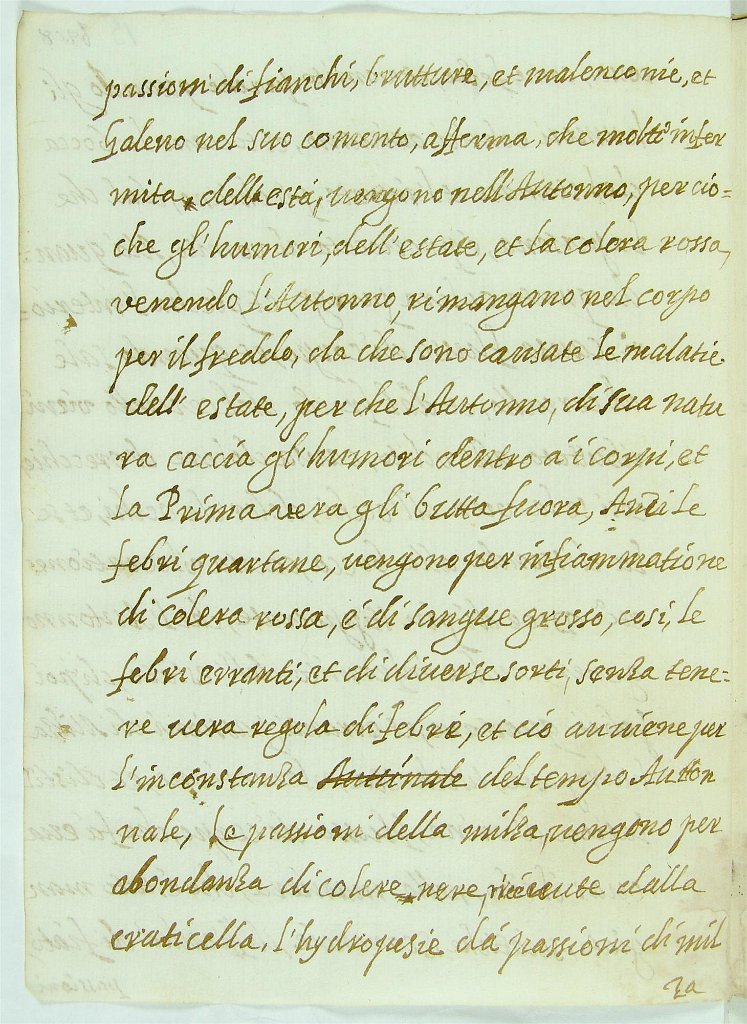 passioni di fianchi, brutture, et malenconie, et
Galeno nel suo comento, afferma, che molti infer
mita, della està, vengono nell'Autonno, per cio=
che gl'humori, dell'estate, et la colera rossa,
venendo l'Autonno, rimangano nel corpo
per il freddo, da che sono causate le malatie
dell' estate, per che l'Autonno, di sua natu
ra caccia gl'humori dentro à i corpi, et
la Prima vera gli butta fuora, Anzi le
febri quartane, vengono per infiammatione
di colera rossa, é di sangue grosso, cosi, le
febri erranti, et di diverse sorti, senza tene=
re vera regola di febre, et ciò auuiene per
l'inconstanza Auttinale del tempo Auton
nale, Le passioni della milza, vengono per
abondanza di colere nere, riceute dalla
craticella, l'hydropesie dà passioni di mil
za